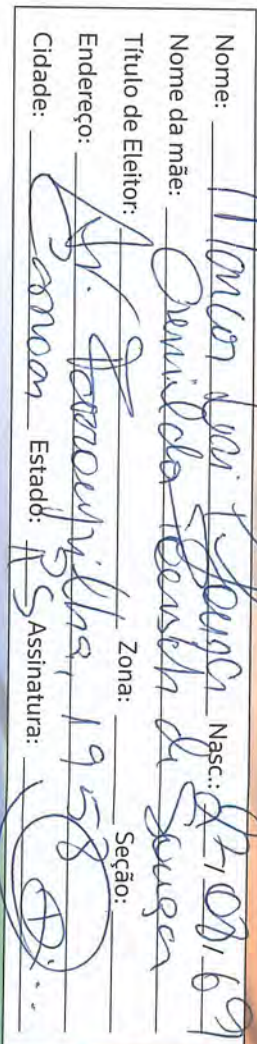 Nome: Marcos Luis T. Souza Nasc.: 03/69
Nome da mãe: Oremilda de Souza
Título de Eleitor: Zona: Seção:
Endereço: Av. Farroupilha, 1958
Cidade: Canoas Estado: RS Assinatura: